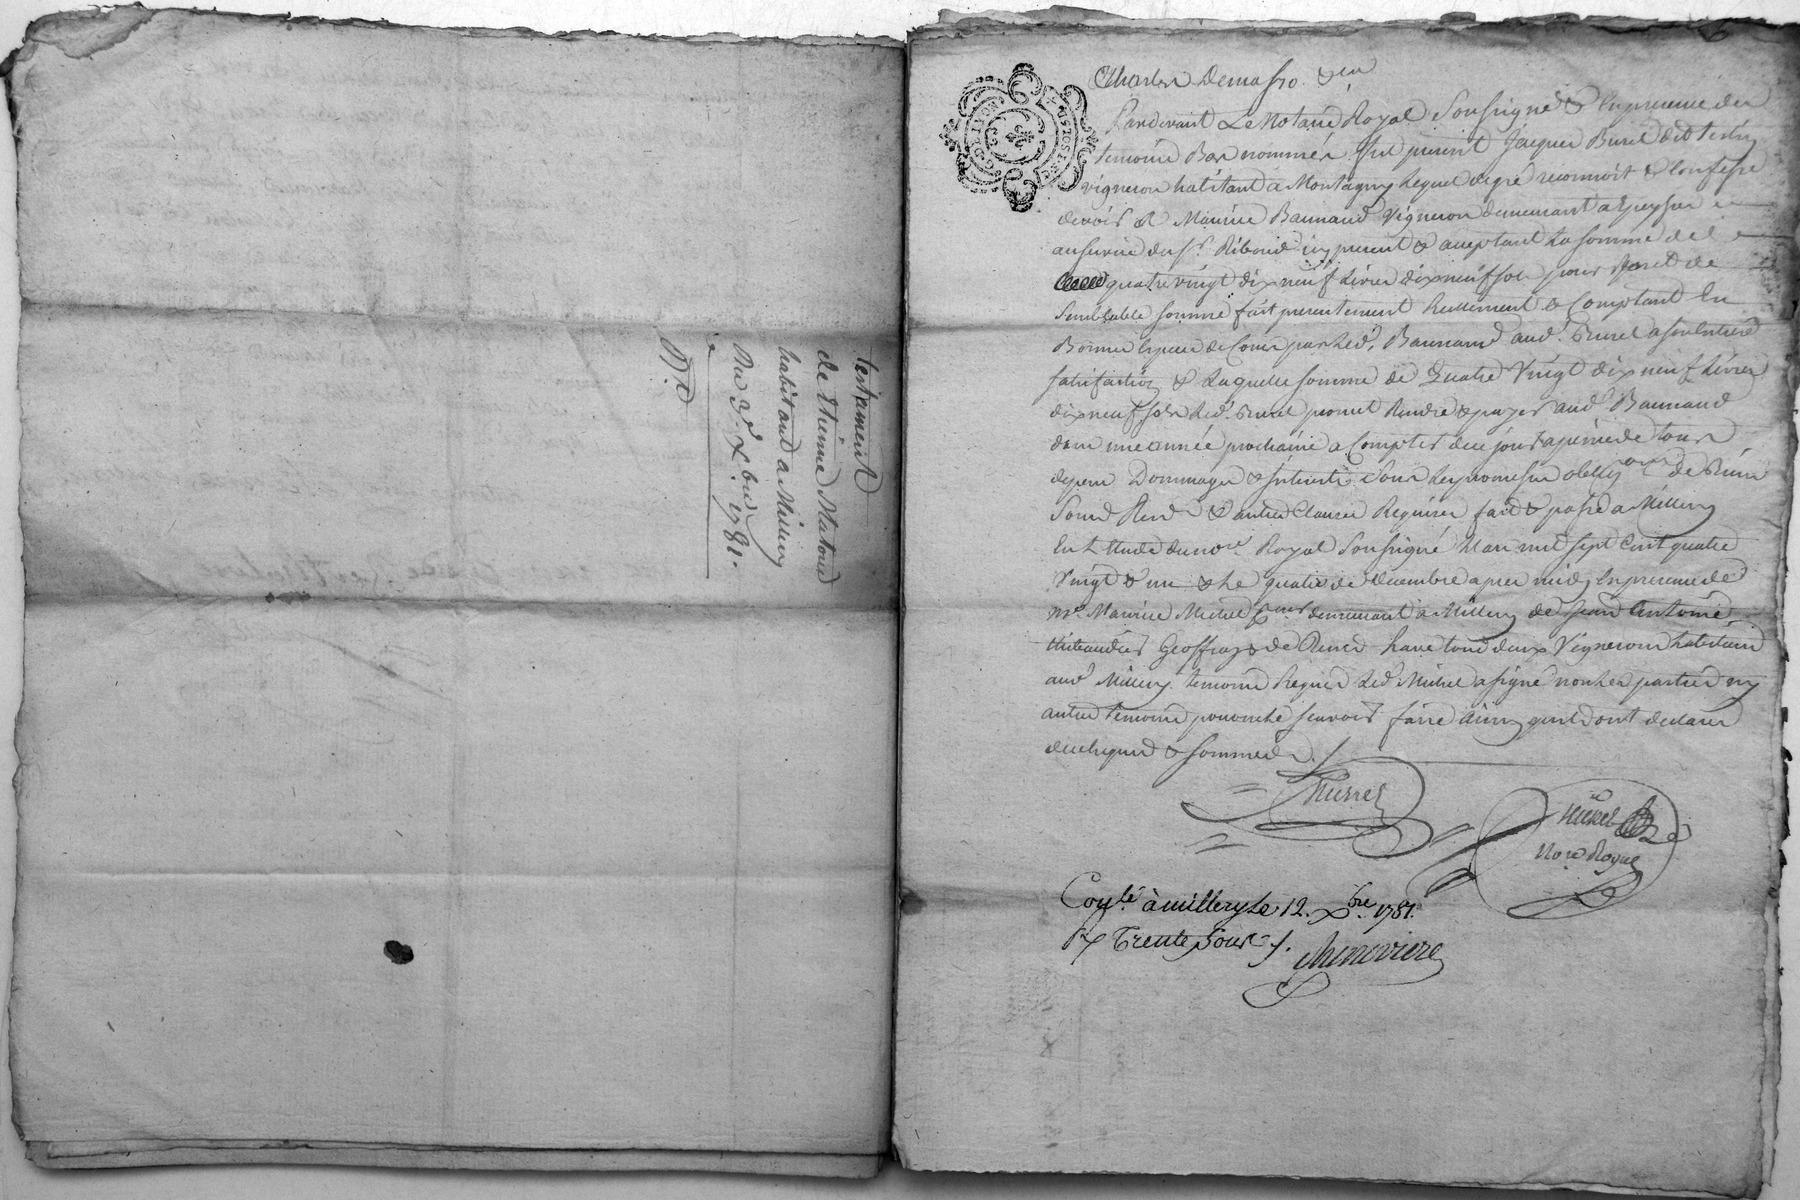 testament
de Etienne Matoud
habitant a Millery
Du 3e Xbre 1781.
G. DE LYON
Pardevant Le Notaire Royal Soussigné & En presence des
temoins Bas nommés fut present Jacques Burel dit
vigneron habitant a Montagny Lequel de gré reconnoit & Confesse
devoir a Maurice Bannand Vigneron demeurant a
au service du Sr. Riboud icy present & acceptant La somme de
quatre vingt dix neuf Livres dix neuf sols pour Prest de
Semblable somme fait presentement Reellement & Comptant En
Bonnes Especes de Cours par Led. Bannand aud. Burel a son Entiere
satisfaction & Laquelle somme de Quatre Vingt dix neuf Livres
dix neuf sols Led. Burel promet Rendre & payer aud. Bannand
dans une année prochaine a Compter de ce jour a peine de tous
depens Dommages & Interets Sous Les promesses oblig.ons de Biens
Soum.s Ren.s & autres Clauses Requises fait & passé a Millery
En L Etude du no.re Royal Soussigné L'an mil sept Cent quatre
Vingt & un & Le quatre de decembre apres midy En presence de
Mre Maurice Michel demeurant a Millery de Jean Antoine
Geoffray & de tous deux Vignerons habitants
aud. Millery temoins Requis Led. Michel a signé non Les parties ny
autre temoins pour ne le scavoir faire ainsy qu'ils ont declaré
de ce Enquis & sommés
Michel
No.re Royal
Con.lé à millery Le 12. Xbre. 1781.
R. Trente Sous